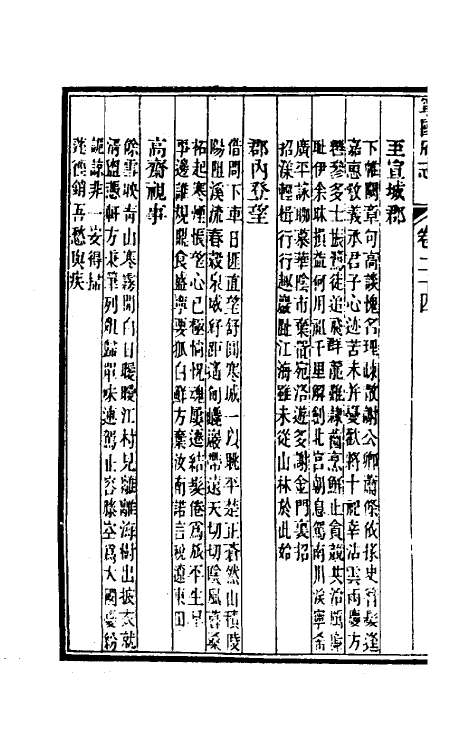 寧國府志
卷二十四
至宣城郡
下帷闕章句高談愧名理疎散謝公卿蕭條依掾史簪髮逢
嘉惠敎義承君子心迹苦未并憂歡將十祀幸沾雲雨慶方
轡參多士振鷺徒追飛群龍難隸齒烹鮮止貪競共治屬廉
恥伊余昧損益何用祗千里解劍北宮朝息駕南川涘寧希
廣平詠聊慕華陰市棄置宛洛遊多謝金門裏招
招漾輕楫行行趨巖趾江海雖未從山林於此始
郡內登望
借問下車日匪直望舒圓寒城一以眺平楚正蒼然山積陵
陽阻溪流春穀泉威紆距遙甸巉巖帶遠天切切陰風暮桑
柘起寒煙悵望心已極惝怳魂屢遷結髮倦爲旅平生早
事邊誰規鼎食盛寧要狐白鮮方棄汝南諾言稅遼東田
高齋視事
餘雪映青山寒霧開白日曖曖江村見離離海樹出披衣就
清盥憑軒方秉筆列俎歸單味連駕止容膝空爲大國憂紛
詭諒非一安得掃
蓬徑銷吾愁與疾